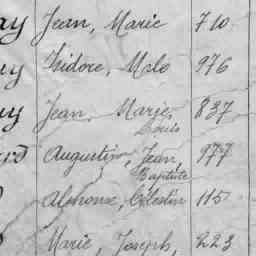 ay Jean, Marie 710
y Isidore, Malo 976
uy Jean, Marie, 837
Louis
rd Augustin, Jean, 977
Baptiste
Alphonse, Célestin 115
Marie, Joseph, 223